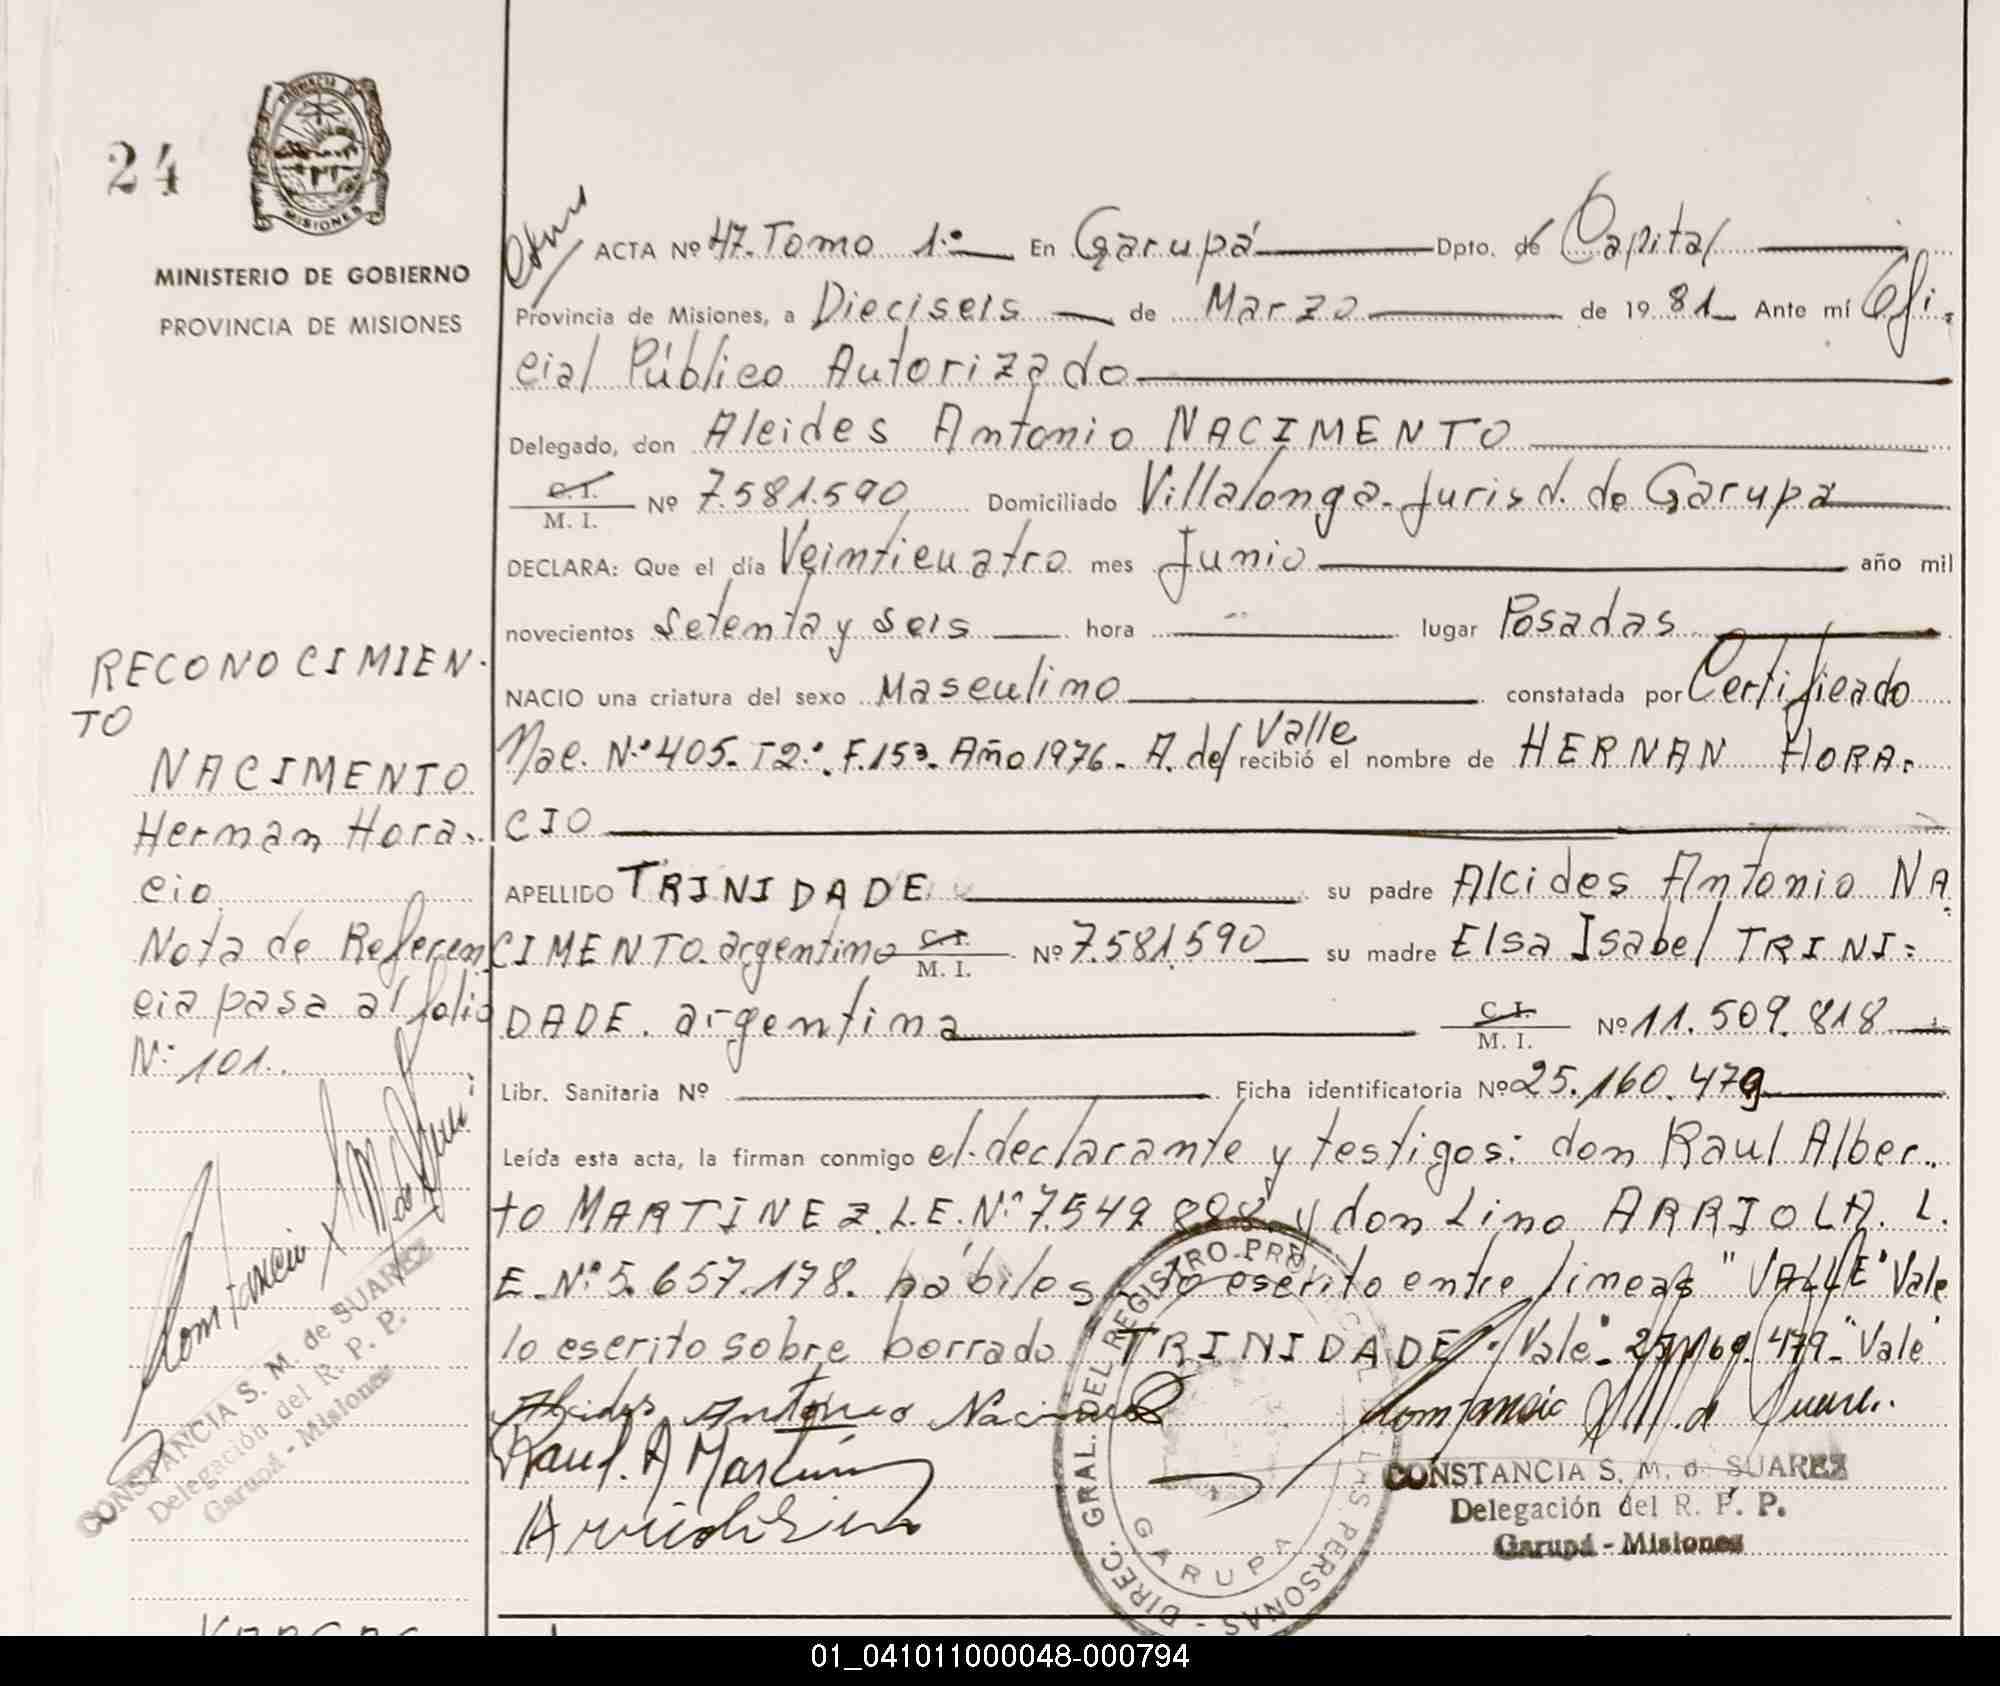 24
PROVINCIA DE
MISIONES
MINISTERIO DE GOBIERNO
PROVINCIA DE MISIONES
ACTA Nº 47. Tomo 1.º En Garupá Dpto. de Capital
Provincia de Misiones, a Dieciseis de Marzo de 19 81 Ante mí Ofi-
cial Público Autorizado
Delegado, don Alcides Antonio NACIMENTO
C. I.
M. I. Nº 7.581.590 Domiciliado Villalonga-Jurisd. de Garupá
DECLARA: Que el día Veinticuatro mes Junio año mil
novecientos setenta y seis hora lugar Posadas
NACIO una criatura del sexo Masculino constatada por Certificado
Nac. N.º 405. T2.º. F.153. Año 1976. A. del Valle recibió el nombre de HERNAN HORA-
CIO
APELLIDO TRINIDADE su padre Alcides Antonio NA-
CIMENTO. argentino C. I. M. I. Nº 7.581.590 su madre Elsa Isabel TRINI=
DADE. argentina C. I. M. I. Nº 11.509.818
Libr. Sanitaria Nº Ficha identificatoria Nº 25.160.479
Leída esta acta, la firman conmigo el declarante y testigos: don Raul Alber-
to MARTINEZ. L.E. Nº 7.549.888 y don Lino ARRIOLA. L.
E. Nº 5.657.178. hábiles lo escrito entre lineas "VALLE" Vale
lo escrito sobre borrado TRINIDADE "Vale" 25.160.479 "Vale"
Alcides Antonio
Raul. A Martinez
CONSTANCIA S. M. de SUAREZ
Delegación del R. P. P.
Garupá - Misiones
DIREC. GRAL. DEL REGISTRO PROVINCIAL DE LAS PERSONAS -
GARUPA
RECONOCIMIEN-
TO
NACIMENTO
Hernan Hora-
cio
Nota de Referen
cia pasa al folio
Nº 101.
CONSTANCIA S. M. de SUAREZ
Delegación del R. P. P.
Garupá - Misiones
01_041011000048-000794